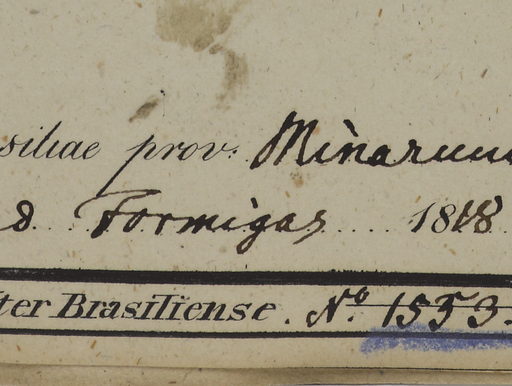 siliae prov: Minarum
d Formigas 1818
ter Brasiliense. No. 1553.